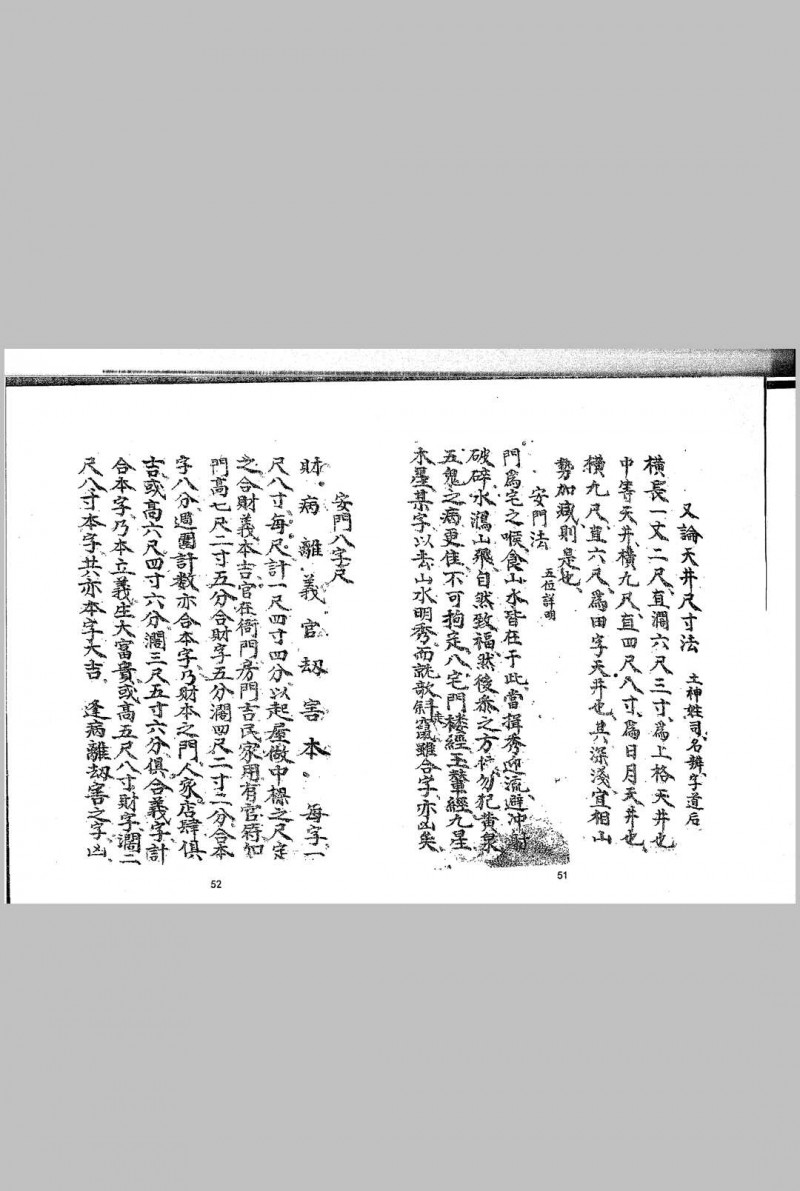 又論天井尺寸法 土神姓司名辨字道后
橫長一丈二尺直濶六尺三寸爲上格天井也
中等天井橫九尺直四尺八寸爲日月天井也
橫九尺直六尺爲田字天井也其深淺宜相山
勢加减則是也
安門法 五位詳明
門爲宅之喉食山水皆在于此當揖秀迎流避冲射
破碎水瀉山飛自然致福然後叅之方 勿犯黄泉
五鬼之病更佳不可拘定八宅門楼經玉輦經九星
木星某字以去山水明秀而就歌斜 雖合字亦凶矣
51
安門八字尺
財病離義官刼害本 每字一
尺八寸每尺計一尺四寸四分以起屋做中樑之尺定
之合財義本吉官在衙門房門吉民家用有官符如
門高七尺二寸五分合財字五分濶四尺二寸二分合本
字八分週圍計數亦合本字乃財本之門人家店肆俱
吉或高六尺四寸六分濶三尺五寸六分俱合義字計
合本字乃本立義生大富貴或高五尺八寸財字濶二
尺八寸本字共六亦本字大吉 逢病離刼害之字凶
52